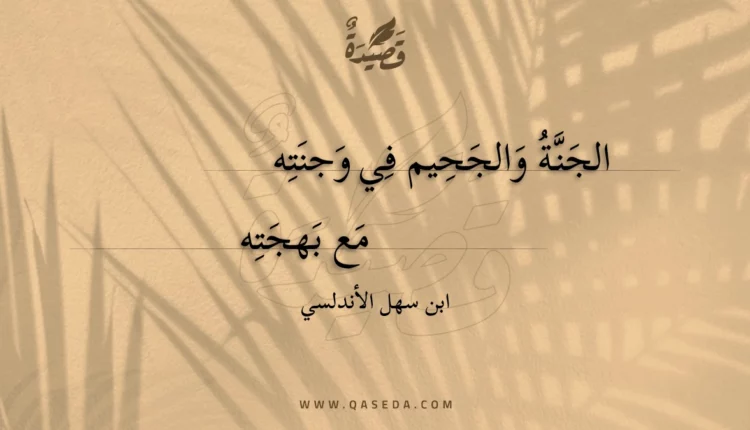 قَصِيْدَةٌ
الجَنَّةُ وَالجَحِيم فِي وَجنَتِه
مَع بَهجَتِه
ابن سهل الأندلسي
WWW.QASEDA.COM